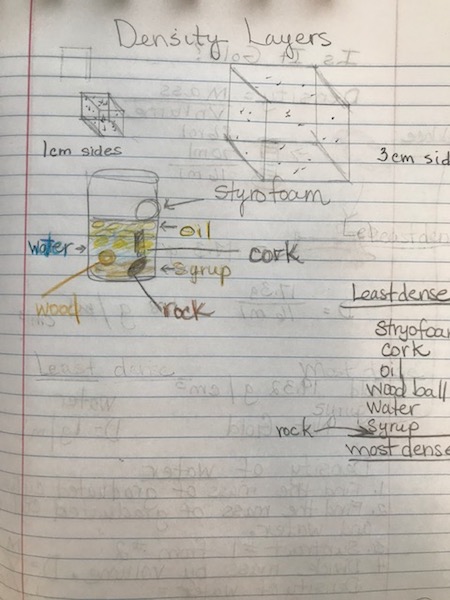 Density Layers
1cm sides
3cm sid
styrofoam
oil
water
cork
syrup
wood
rock
Least dense
Stryofoa
cork
oil
wood ball
water
rock syrup
most dense